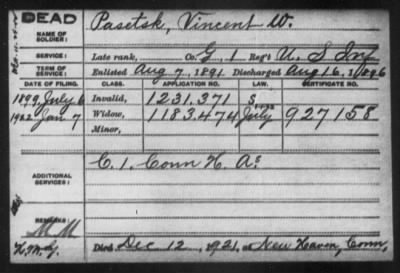 DEAD
NAME OF SOLDIER: Pasetsk, Vincent W.
SERVICE: Late rank, Co. G, 1 Reg't U. S. Inf
TERM OF SERVICE: Enlisted Aug 7, 1891 Discharged Aug 16, 1896
DATE OF FILING. CLASS. APPLICATION NO. LAW. CERTIFICATE NO.
1899, July 6 Invalid, 1231.371 S,
1922 Jan 7 Widow, 1183.474 July 927158
Minor,
ADDITIONAL SERVICES: C. 1. Conn H. A.
REMARKS:
MM
Died Dec 12, 1921, at New Haven, Conn,